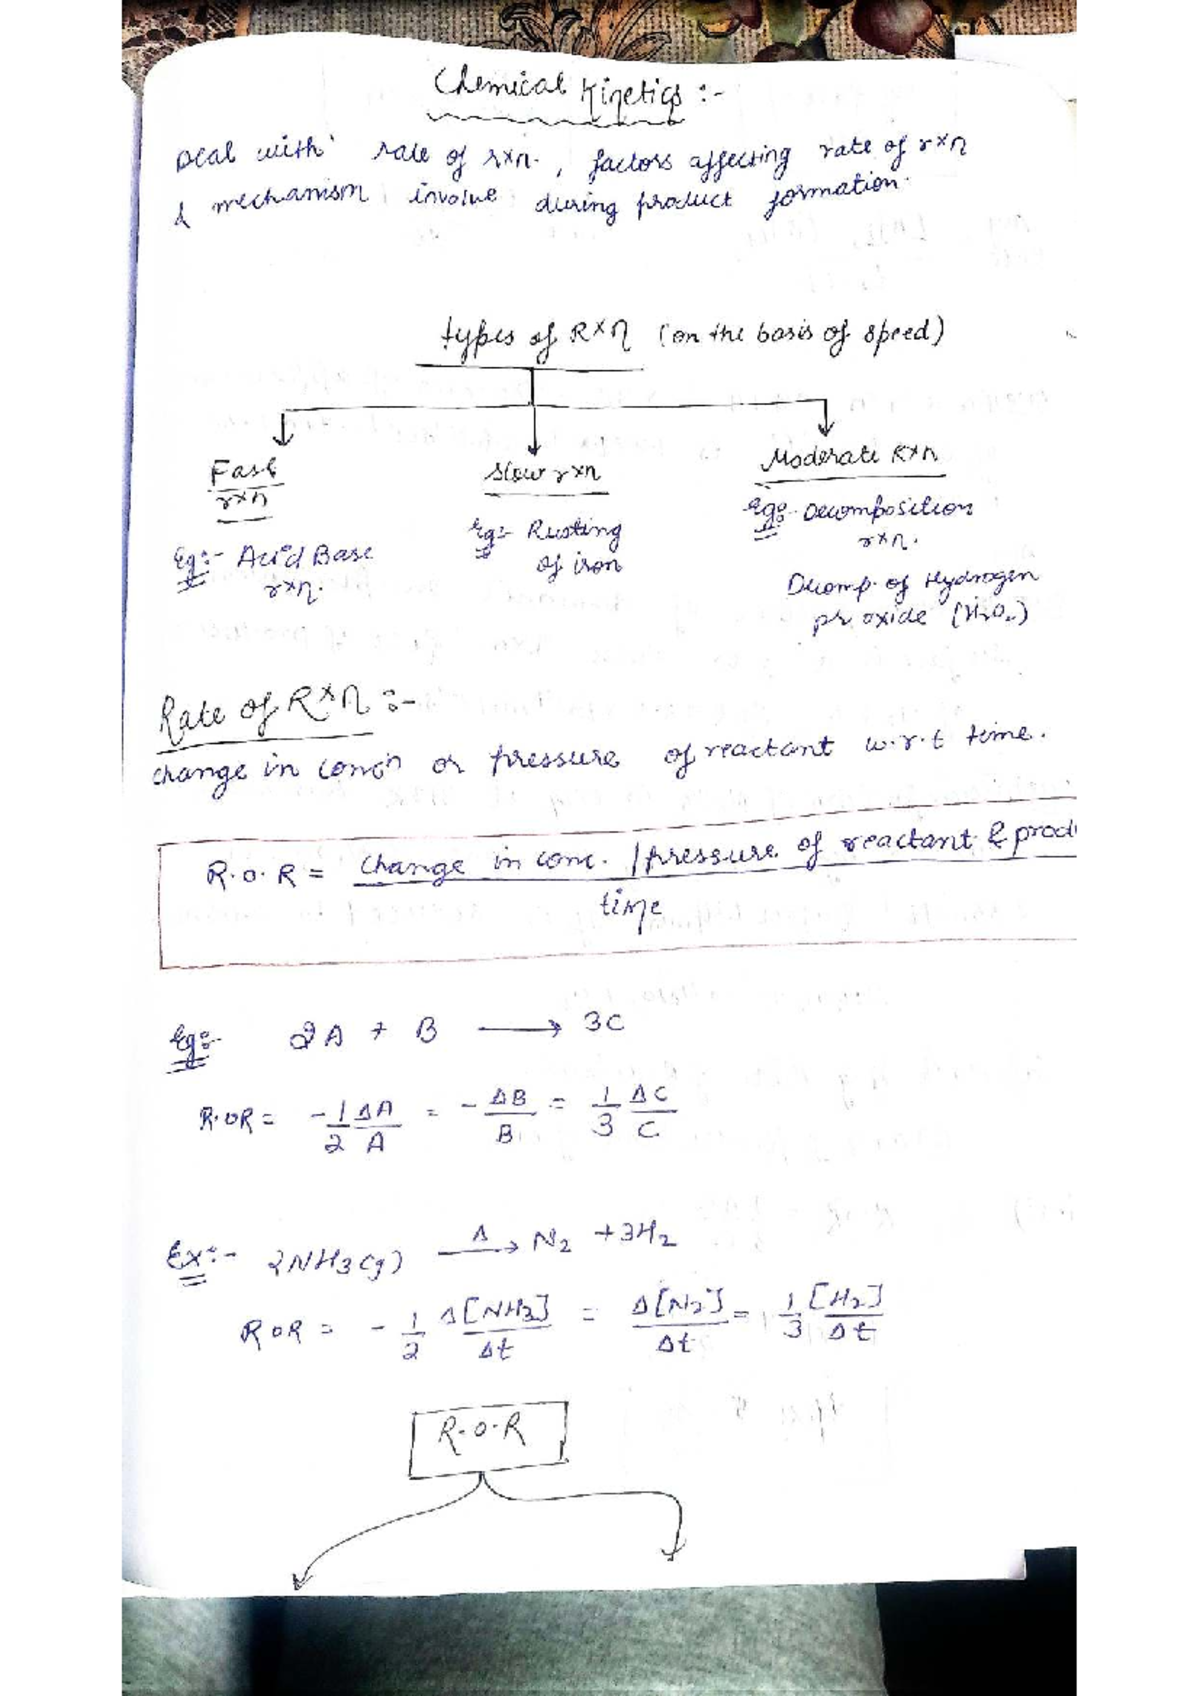 Chemical Kinetics :-
Deal with rate of rxn. , factors affecting rate of rxn
& mechanism involve during product formation.
types of Rxn (on the basis of speed)
Fast rxn
Eg:- Acid Base rxn.
Slow rxn
Eg:- Rusting of iron
Moderate Rxn
Eg:- Decomposition rxn.
Dcomp. of Hydrogen proxide (H2O2)
Rate of Rxn :-
change in concn or pressure of reactant w.r.t time.
R.o.R = change in conc. / pressure of reactant & produ
time
Eg:- 2A + B ⟶ 3C
R.OR = -1/2 ΔA/A = - ΔB/B = 1/3 ΔC/C
Ex:- 2NH3(g) Δ⟶ N2 + 3H2
ROR = - 1/2 Δ[NH3]/Δt = Δ[N2]/Δt = 1/3 [H2]/Δt
R.O.R